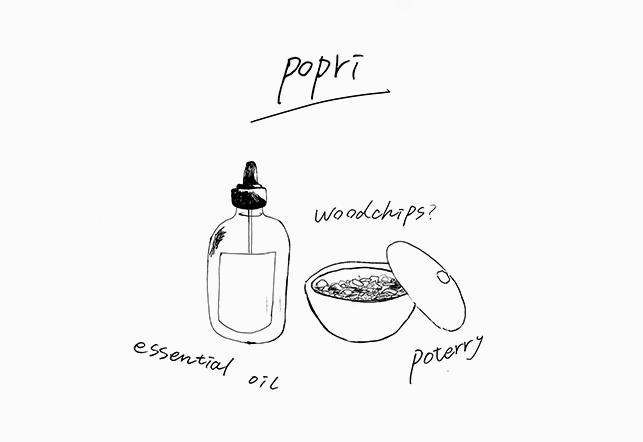 popri
woodchips?
essential oil
poterry